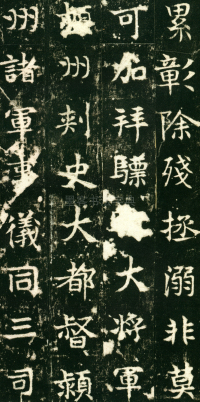 累彰除殘拯溺非莫
可加拜驃大將軍
州刺史大都督潁
州諸軍事儀同三司